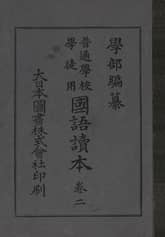 學部編纂
普通學校
學徒用
國語讀本 卷二
大日本圖書株式會社印刷